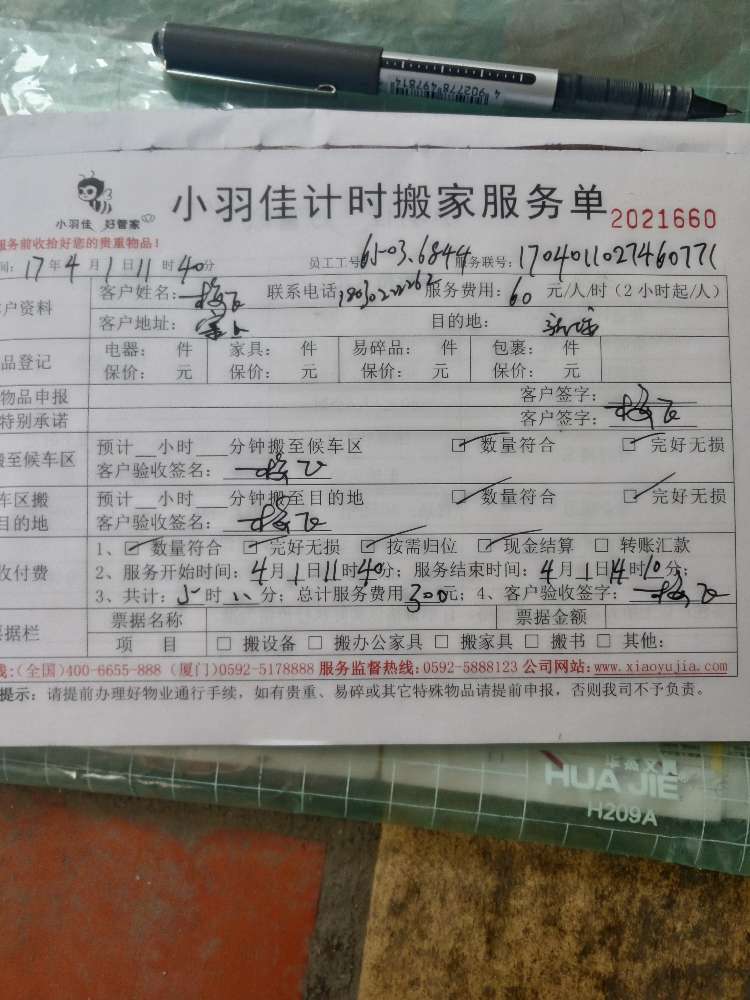 4902778 497814
小羽佳 好管家
小羽佳计时搬家服务单 2021660
服务前收拾好您的贵重物品!
间: 17年4月1日11时40分 员工工号 服务联号: 170401102746077
户资料 客户姓名: 联系电话 服务费用: 60 元/人/时 (2小时起/人)
客户地址: 目的地:
品登记 电器: 件 家具: 件 易碎品: 件 包裹: 件
保价: 元 保价: 元 保价: 元 保价: 元
物品申报 客户签字:
特别承诺 客户签字:
搬至候车区 预计__小时__分钟搬至候车区 ☑ 数量符合 ☑ 完好无损
客户验收签名:
车区搬 预计__小时__分钟搬至目的地 ☑ 数量符合 ☑ 完好无损
目的地 客户验收签名:
收付费 1、☑ 数量符合 ☑ 完好无损 ☑ 按需归位 ☑ 现金结算 □ 转账汇款
2、服务开始时间: 4月1日11时40分; 服务结束时间: 4月1日14时10分;
3、共计: 时 分; 总计服务费用 300元; 4、客户验收签字:
票据栏 票据名称 票据金额
项 目 □ 搬设备 □ 搬办公家具 □ 搬家具 □ 搬书 □ 其他:
线:(全国)400-6655-888 (厦门)0592-5178888 服务监督热线:0592-5888123 公司网站: www.xiaoyujia.com
提示: 请提前办理好物业通行手续, 如有贵重、易碎或其它特殊物品请提前申报, 否则我司不予负责。
华杰文具
HUA JIE
H209A